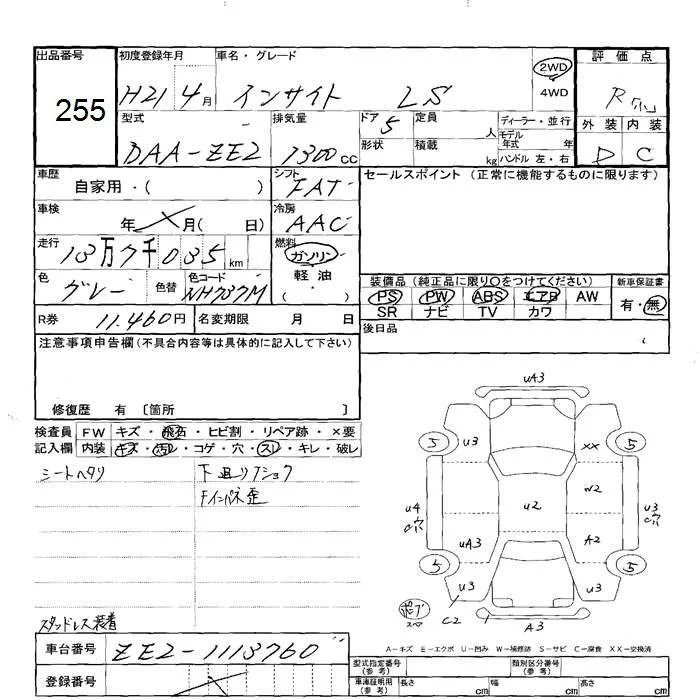 出品番号 初度登録年月 車名・グレード 2WD 評価点
255 H21 4月 インサイト LS 4WD R
外装 内装
D C
型式 排気量 ドア 定員 ディーラー・並行
DAA-ZE2 1300cc 5 人 モデル年式 年
形状 積載 kg ハンドル 左・右
車歴 シフト セールスポイント(正常に機能するものに限ります)
自家用・( ) FAT
車検 冷房
年 月( 日) AAC
走行 燃料
13万7千035km ガソリン
色 色替 色コード 軽油
グレー NH737M ( )
装備品(純正品に限り○をつけてください) 新車保証書
PS PW ABS エアB AW 有・無
SR ナビ TV カワ
R券 11.460円 名変期限 月 日 後日品
注意事項申告欄(不具合内容等は具体的に記入して下さい)
修復歴 有〔箇所 〕
検査員 FW キズ・飛石・ヒビ割・リペア跡・×要
記入欄 内装 キズ・汚れ・コゲ・穴・スレ・キレ・破レ
シートヘタリ
Fインパネ歪
スタッドレス装着
uA3
5 u3 XX 5
W2
u4 穴 u2 u3 C穴
uA3 A2
5 u3 u3 5
C2 A3
A−キズ E−エクボ U−凹み W−補修跡 S−サビ C−腐食 XX−交換済
車台番号 ZE2-1113760
登録番号
型式指定番号(参考) 類別区分番号(参考)
車庫証明用(参考) 長さ cm 幅 cm 高さ cm